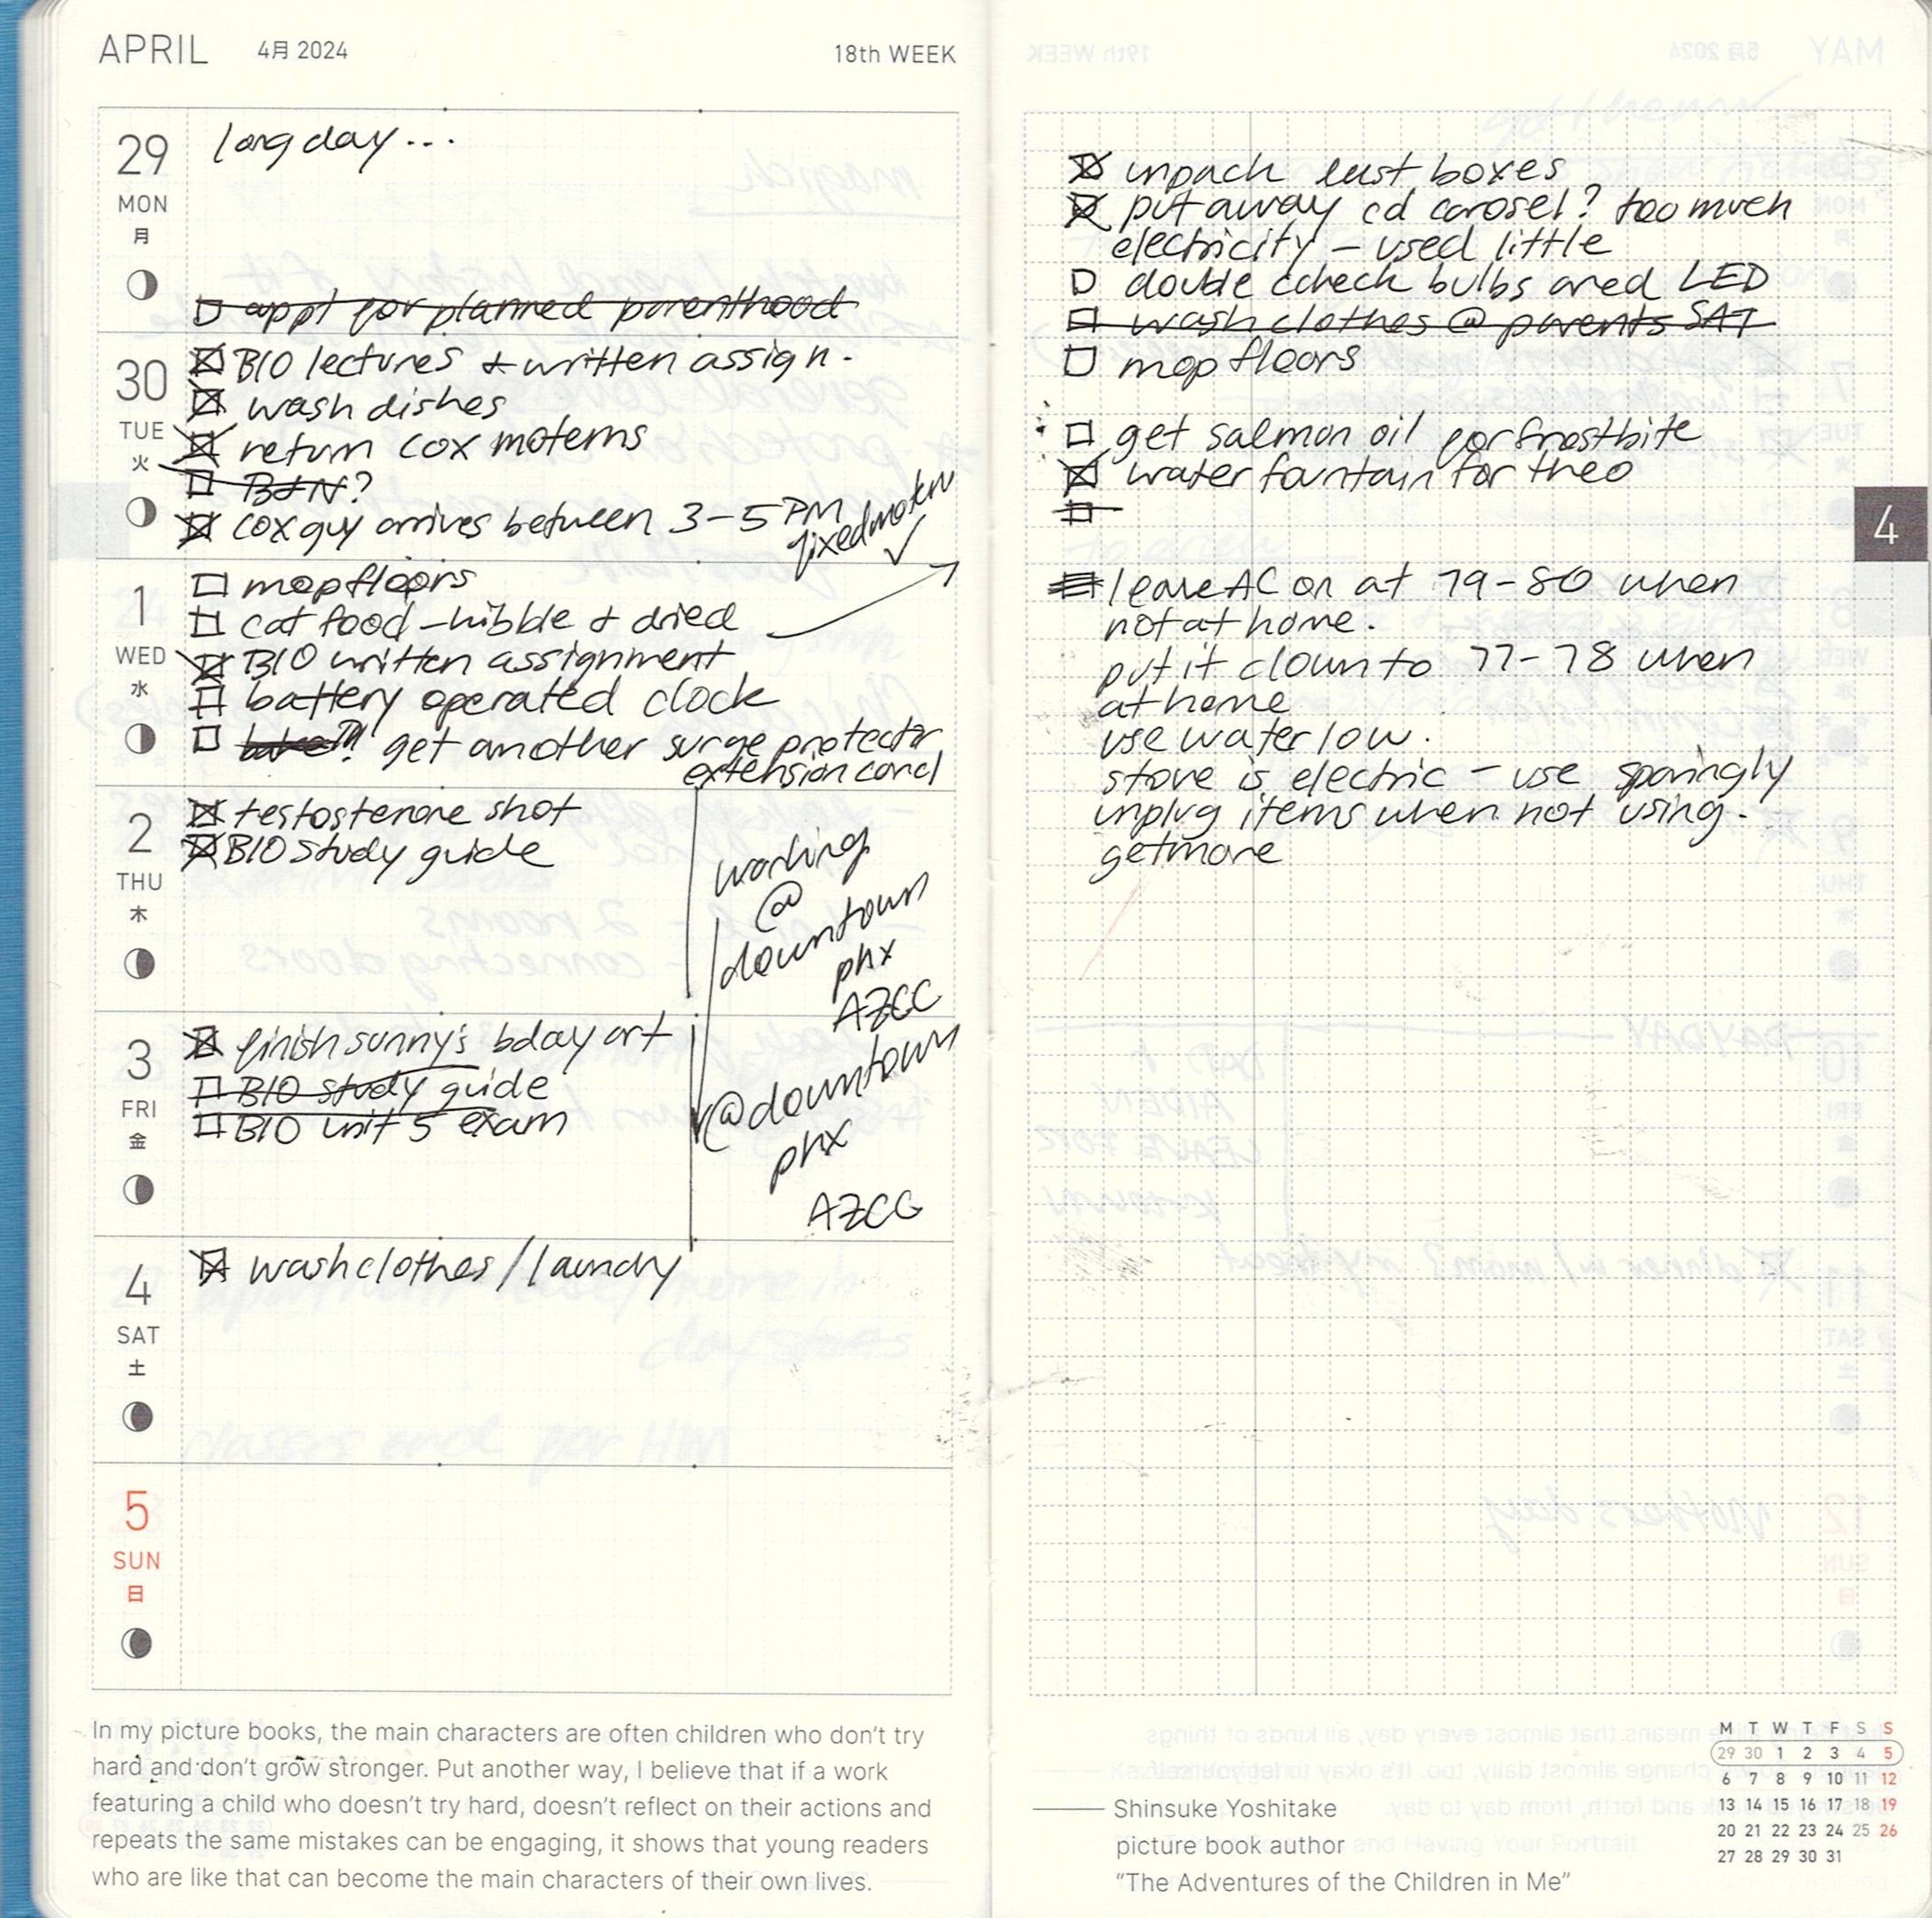 APRIL 4月 2024 18th WEEK
29 MON 月
long day...
appt for planned parenthood
30 TUE 火
BIO lectures + written assign.
wash dishes
return cox motems
B+N?
cox guy arrives between 3-5 PM
fixed motem ✓
1 WED 水
mop floors
cat food - kibble + dried
BIO written assignment
battery operated clock
get another surge protector
extension cord
2 THU 木
testosterone shot
BIO study guide
working
@
downtown
phx
AZCC
3 FRI 金
finish sunny's bday art
BIO study guide
BIO unit 5 exam
@downtown
phx
AZCC
4 SAT 土
wash clothes / laundry
5 SUN 日
In my picture books, the main characters are often children who don't try
hard and don't grow stronger. Put another way, I believe that if a work
featuring a child who doesn't try hard, doesn't reflect on their actions and
repeats the same mistakes can be engaging, it shows that young readers
who are like that can become the main characters of their own lives.
unpack last boxes
put away cd carosel? too much
electricity - used little
double ccheck bulbs ared LED
wash clothes @ parents SAT
mop floors
get salmon oil for frostbite
water fountain for theo
4
leave AC on at 79-80 when
not at home.
put it down to 77-78 when
at home
use water low.
stove is electric - use sparingly
unplug items when not using.
getmore
Shinsuke Yoshitake
picture book author
"The Adventures of the Children in Me"
M T W T F S S
29 30 1 2 3 4 5
6 7 8 9 10 11 12
13 14 15 16 17 18 19
20 21 22 23 24 25 26
27 28 29 30 31